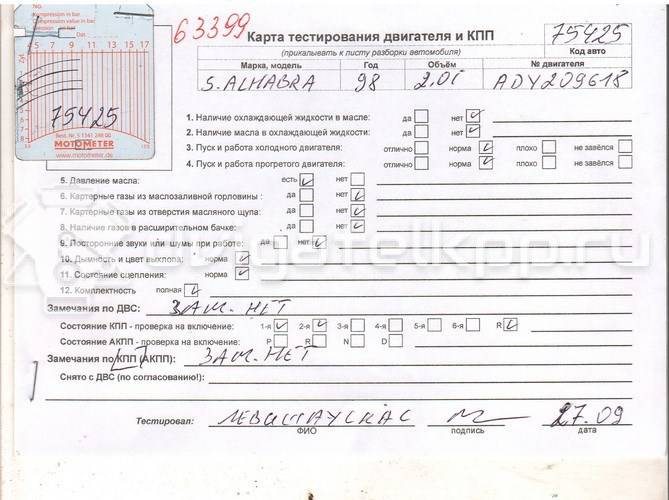 Compression in bar
Compression value in bar
5 7 9 11 13 15 17
75425
Best. Nr. S 1341 248 00
MOTOMETER
www.motometer.de
63399
Карта тестирования двигателя и КПП
75425
(прикалывать к листу разборки автомобиля)
Код авто
Марка, модель Год Объём № двигателя
S. ALHABRA 98 2.0i ADY209618
1. Наличие охлаждающей жидкости в масле: да нет
2. Наличие масла в охлаждающей жидкости: да нет
3. Пуск и работа холодного двигателя: отлично норма плохо не завёлся
4. Пуск и работа прогретого двигателя: отлично норма плохо не завёлся
5. Давление масла: есть нет
6. Картерные газы из маслозаливной горловины: да нет
7. Картерные газы из отверстия масляного щупа: да нет
8. Наличие газов в расширительном бачке: да нет
9. Посторонние звуки или шумы при работе: да нет
10. Дымность и цвет выхлопа: норма
11. Состояние сцепления: норма
12. Комплектность полная
Замечания по ДВС: ЗАМ. НЕТ
Состояние КПП - проверка на включение: 1-я 2-я 3-я 4-я 5-я 6-я R
Состояние АКПП - проверка на включение: P R N D
Замечания по КПП (АКПП): ЗАМ. НЕТ
Снято с ДВС (по согласованию!):
Тестировал: ЛЕВИТАУСКАС 27.09
ФИО подпись дата
dvigatelkpp.ru